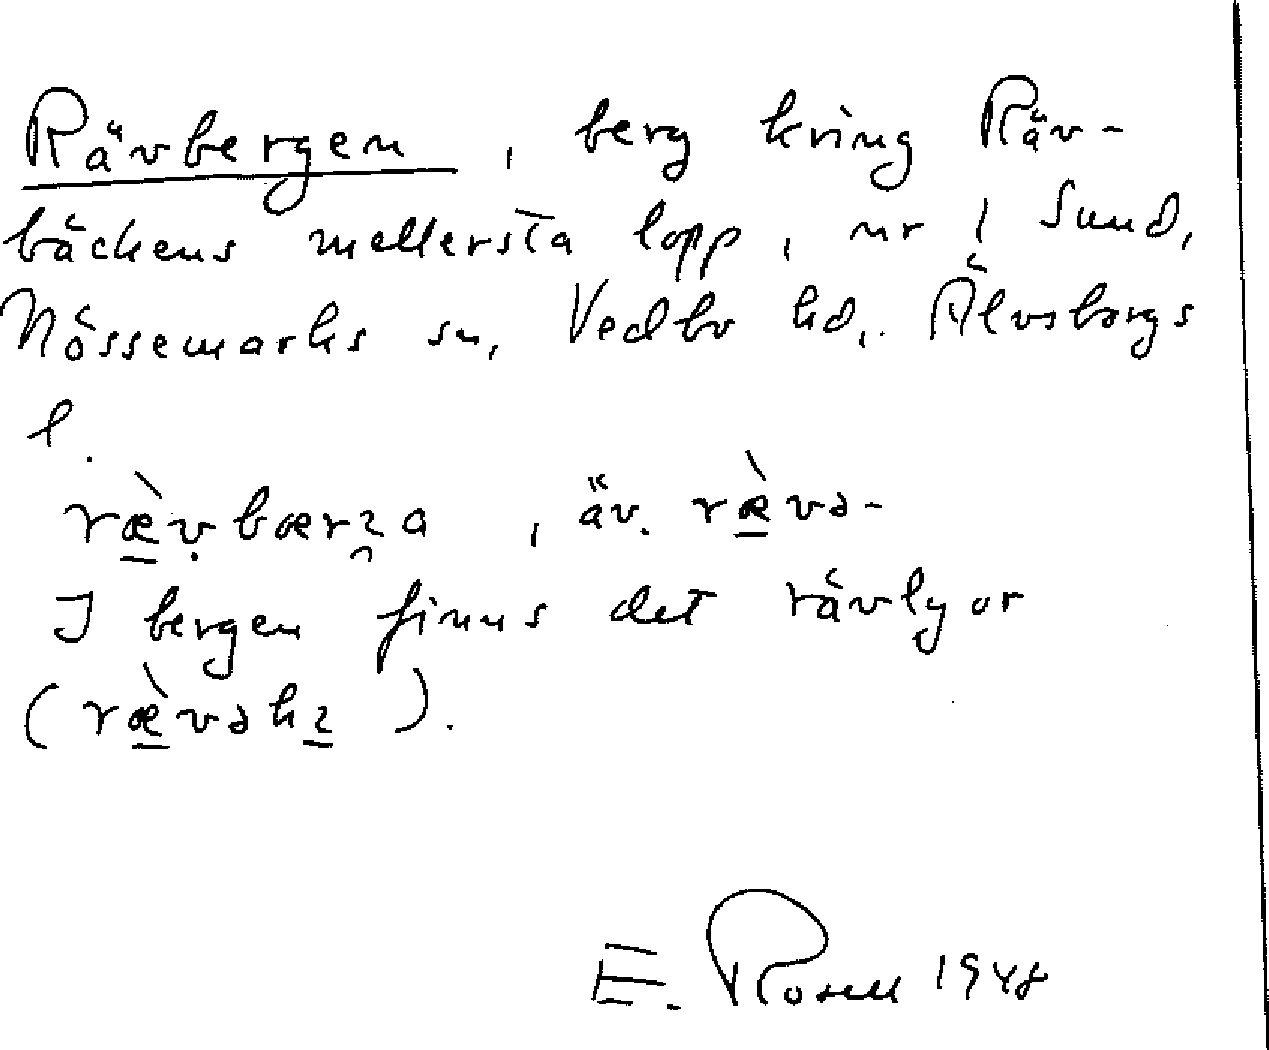 Rävbergen, berg kring Räv-
bäckens mellersta lopp, nr 1 Sund,
Nössemarks sn, Vedbo hd, Älvsborgs
l.
ræ̀v̥bærʒa, äv. ræ̀və-
I bergen finns det rävlyor
(ræ̀vəhı).
E. Rosell 1948